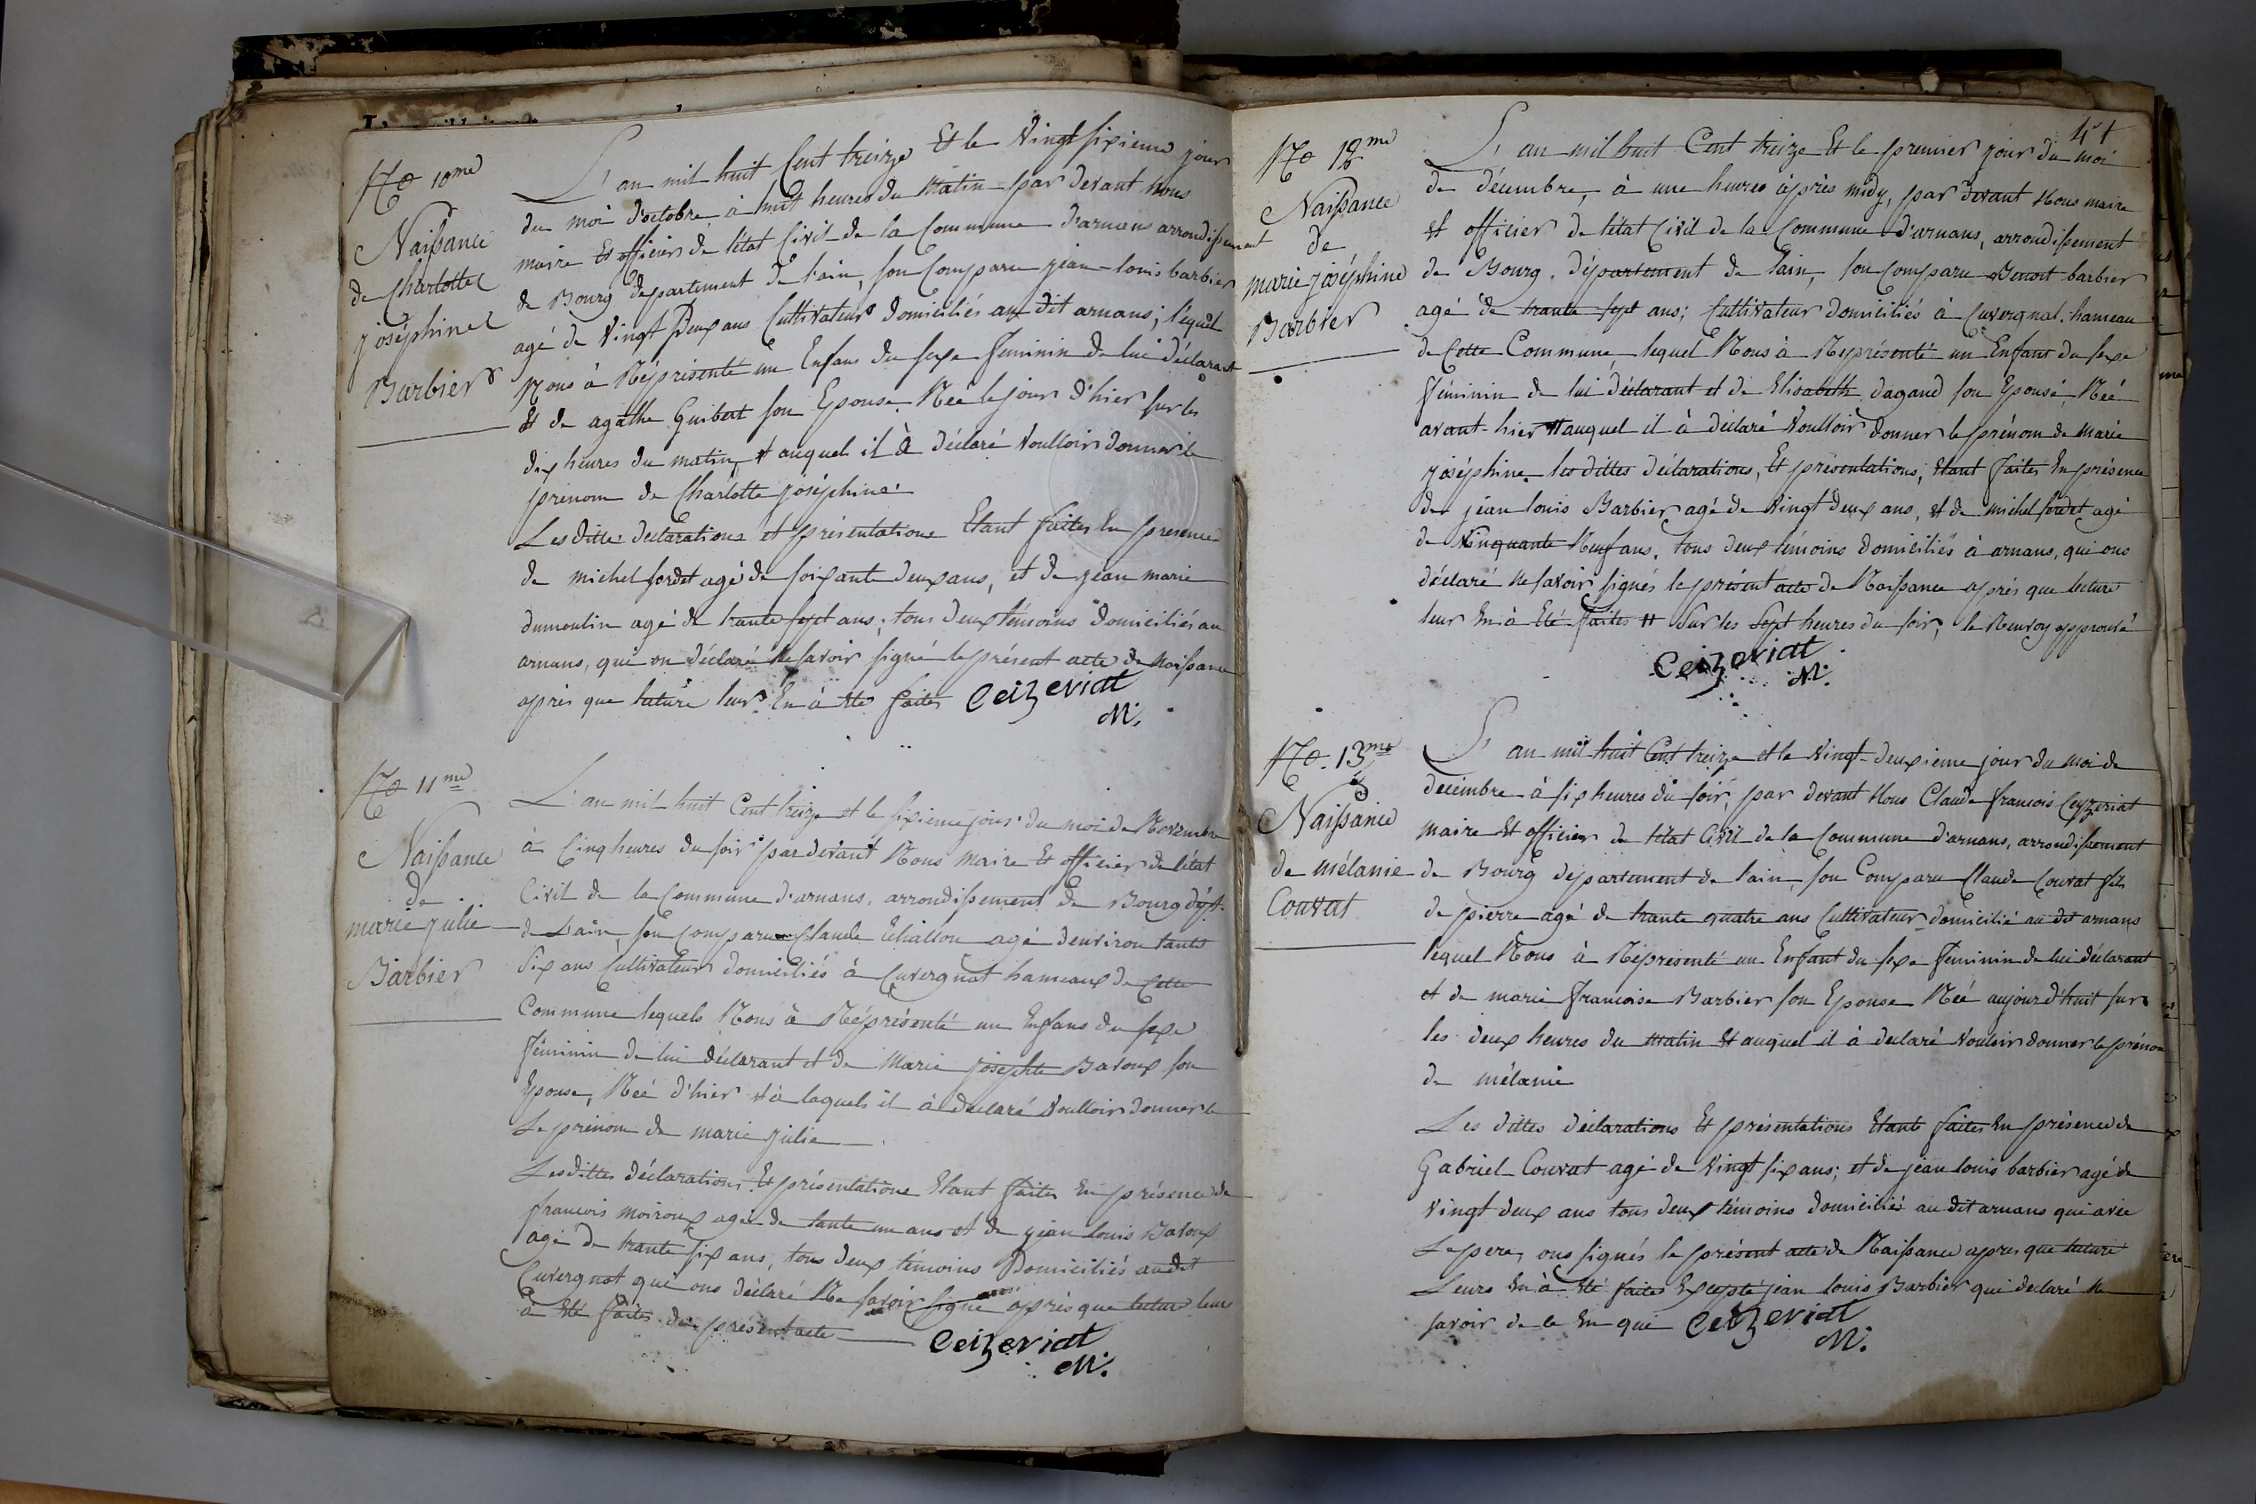 No 10me
Naissance
de Charlotte
joséphine
Barbier
L'an mil huit Cent treize Et le Vingt sixieme jour
du moi d'octobre à huit heures du Matin par devant Nous
maire Et officier de l'état Civil de la Commune d'arnans arrondissement
de Bourg departement de l'ain, son Comparu jean-louis barbier
agé de Vingt Deux ans Cultivateur domiciliés au dit arnans; léquel
Nous à Réprésenté un Enfans du sexe Feminin de lui déclarant
Et de agathe Guibert son Epouse Née le jour d'hier sur les
dix heures du matin, et auquels il à déclaré Voulloir donner le
prenom de Charlotte joséphine.
Les dittes declarations et présentations Etant faites En presence
de michel fordet agé de soixante deux ans, et de jean marie
dumoulin agé de trante sept ans, tous deux témoins domiciliés au
arnans, qui on déclaré Ne savoir signé le présent acte de Naissance
après que lature leurs En à été faites Ceizeriat
M.
No 11me
Naissance
de
marie julie
Barbier
L'an mil huit Cent treize et le sixieme jour du moi de Novembre
à Cinq heures du soir par devant Nous Maire Et officier de l'état
Civil de la Commune d'arnans, arrondissement de Bourg dépt.
de L'ain, son comparu Claude Echallon agé denviron tante
Six ans Cultivateur domiciliés à Cuvergnat hameaux de Cette
Commune lequels Nous à Réprésenté un Enfans du sexe
féminin de lui déclarant et de Marie josephte Baroux son
Epouse, Née d'hier et à laquels il à declaré Voulloir donner le
Le prénom de marie julie
Les dittes déclarations Et présentations Etant faites En présence de
francois moiroux agé de tante un ans et de jean louis Baroux
agé de trante six ans, tous deux témoins Domiciliés audit
Cuvergnat qui ons déclaré Ne savoir signé après que lature leurs
à Eté faites du présent acte Ceizeriat
M.
41
No 12me
Naissance
de
marie joséphine
Barbier
L'an mil huit Cent treize Et le premier jour du moi
de décembre, à une heures après midy, par devant Nous maire
Et officier de l'état Civil de la Commune d'arnans, arrondissement
de Bourg, département de l'ain, son comparu Benoit barbier
agé de trante sept ans; Cultivateur domiciliés à Cuvergnat hameau
de Cette Commune lequel Nous à Réprésenté un Enfant du sexe
féminin de lui déclarant et de Elisabeth dagand son Epouse, Née
avant-hier # auquel il à déclaré Voulloir donner le prénom de marie
joséphine les dittes déclarations, Et présentations, Etant faites En présence
de jean louis Barbier agé de Vingt deux ans, et de michel fordet agé
de Cinquante Neuf ans, tous deux témoins domiciliés à arnans, qui ons
déclaré Ne savoir signés le présent acte de Naissance après que lature
leur En à Eté faites # Sur les Sept heures du soir, le Renvoy approuvé
Ceizeriat
M.
No. 13me
Naissance
de mélanie
Couvat
L'an mil huit Cent treize et le Vingt-deuxieme jour du moi de
décembre à six heures du soir, par devant Nous Claude francois Ceyzeriat
maire Et officier de l'état Civil de la Commune d'arnans, arrondissement
de Bourg département de l'ain, son Comparu Claude Couvat fils
de pierre agé de trante quatre ans Cultivateur domicilié au dit arnans
lequel Nous à Réprésenté un Enfant du sexe Feminin de lui déclarant
et de marie Francoise Barbier son Epouse Née aujourd'huit sur
les deux heures du matin Et auquel il à declaré Vouloir donner le prénom
de mélanie
Les dittes déclarations Et présentations Etant faites En présence de
Gabriel Couvat agé de Vingt six ans; et de jean louis barbier agé de
Vingt deux ans tous deux témoins domiciliés au dit arnans qui avec
Le pere, ons signés le présent acte de Naissance apres que lature
Leurs En à été faites Excepté jean louis Barbier qui declaré Ne
savoir de ce En qui Ceizeriat
M.